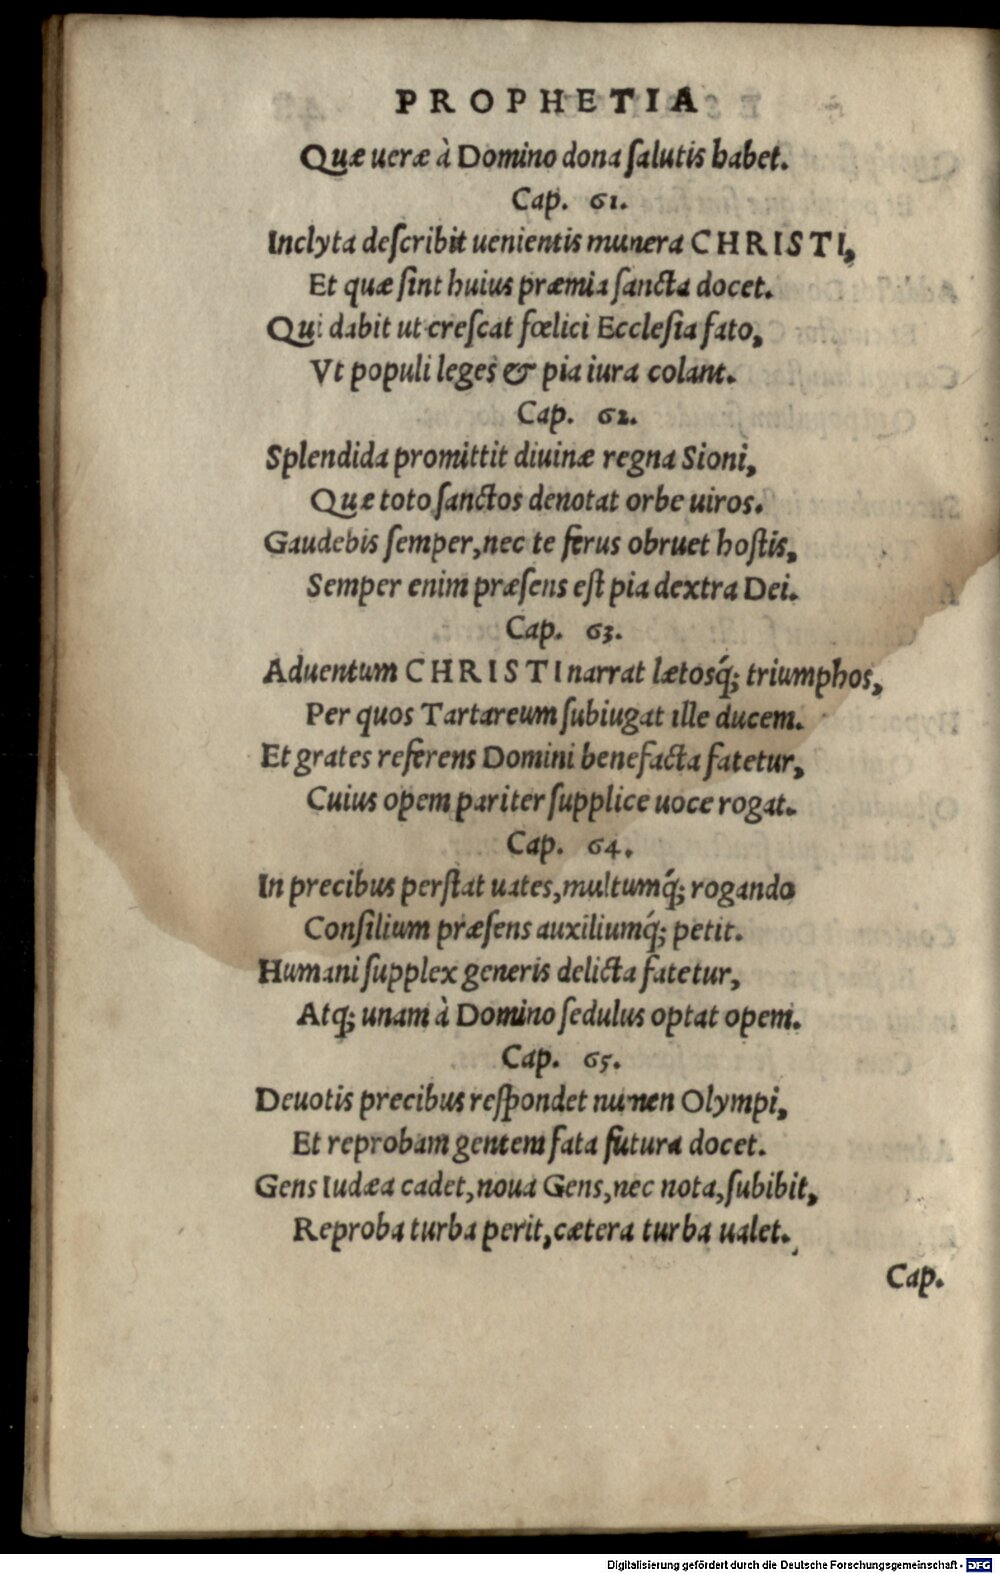 PROPHETIA
Quæ ueræ à Domino dona ſalutis habet.
Cap. 61.
Inclyta deſcribit uenientis munera CHRISTI,
Et quæ ſint huius præmia ſancta docet.
Qui dabit ut creſcat fœlici Eccleſia fato,
Vt populi leges & pia iura colant.
Cap. 62.
Splendida promittit diuinæ regna Sioni,
Quæ toto ſanctos denotat orbe uiros.
Gaudebis ſemper, nec te ferus obruet hoſtis,
Semper enim præſens eſt pia dextra Dei.
Cap. 63.
Aduentum CHRISTI narrat lætosq́; triumphos,
Per quos Tartareum ſubiugat ille ducem.
Et grates referens Domini benefacta fatetur,
Cuius opem pariter ſupplice uoce rogat.
Cap. 64.
In precibus perſtat uates, multumq́; rogando
Conſilium præſens auxiliumq́; petit.
Humani ſupplex generis delicta fatetur,
Atq; unam à Domino ſedulus optat opem.
Cap. 65.
Deuotis precibus reſpondet numen Olympi,
Et reprobam gentem fata futura docet.
Gens Iudæa cadet, noua Gens, nec nota, ſubibit,
Reproba turba perit, cætera turba ualet.
Cap.
Digitalisierung gefördert durch die Deutsche Forschungsgemeinschaft - DFG